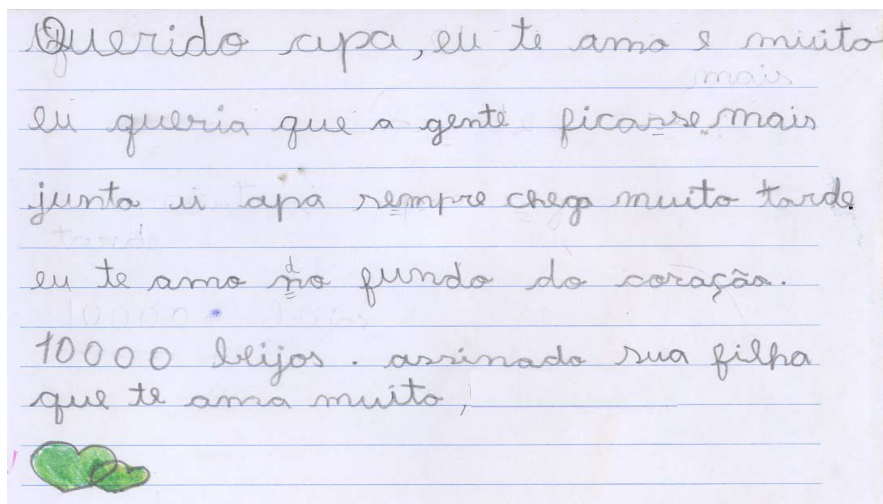 Querido apa, eu te amo e muito
eu queria que a gente ficasse mais
junto u apa sempre chega muito tarde.
eu te amo do fundo do coração.
10000 beijos. assinado sua filha
que te ama muito,